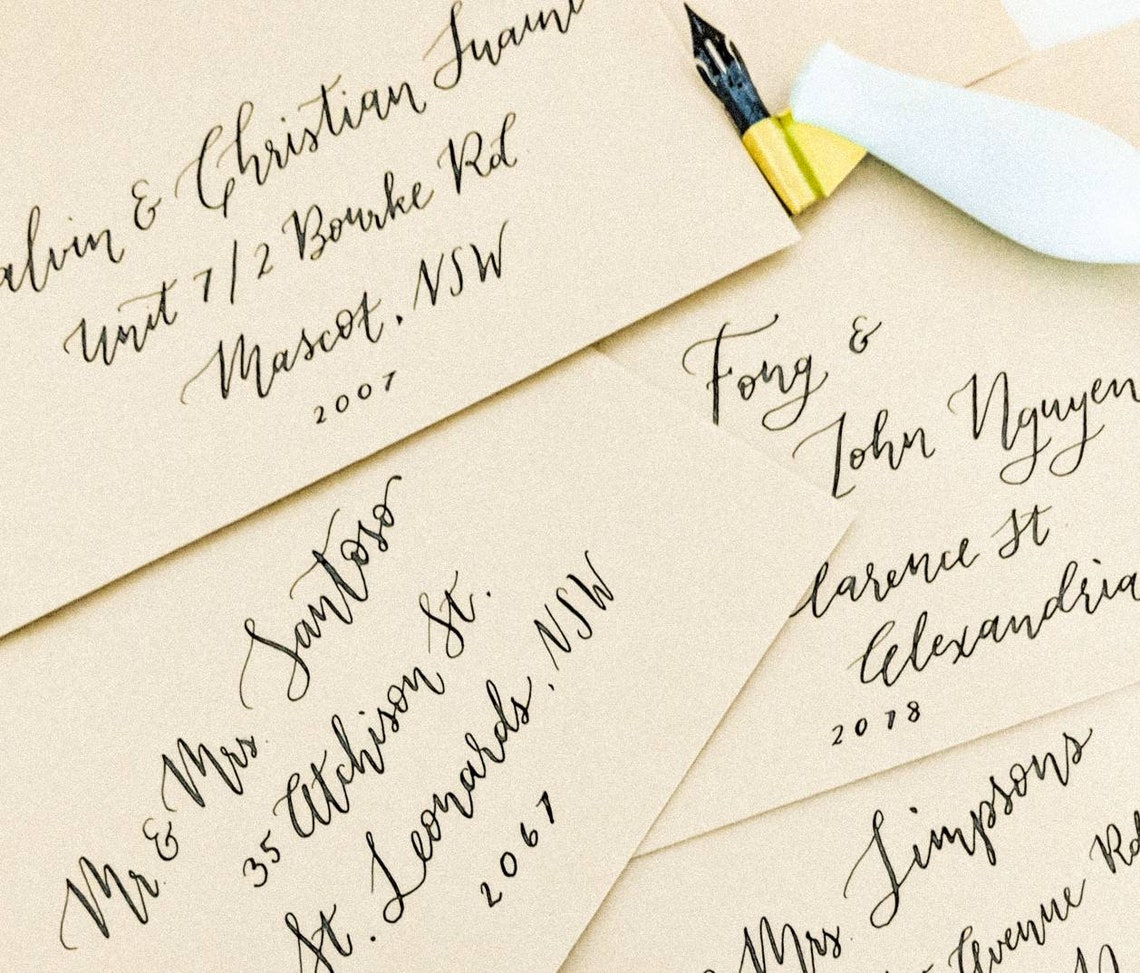 alvin & Christian
Unit 7/2 Bourke Rd
Mascot, NSW
2007
Fong &
John Nguyen
larence St
Alexandria
2078
Mr & Mrs. Santoso
35 Atchison St.
St. Leonards, NSW
2067
Mrs. Simpsons
Avenue Rd